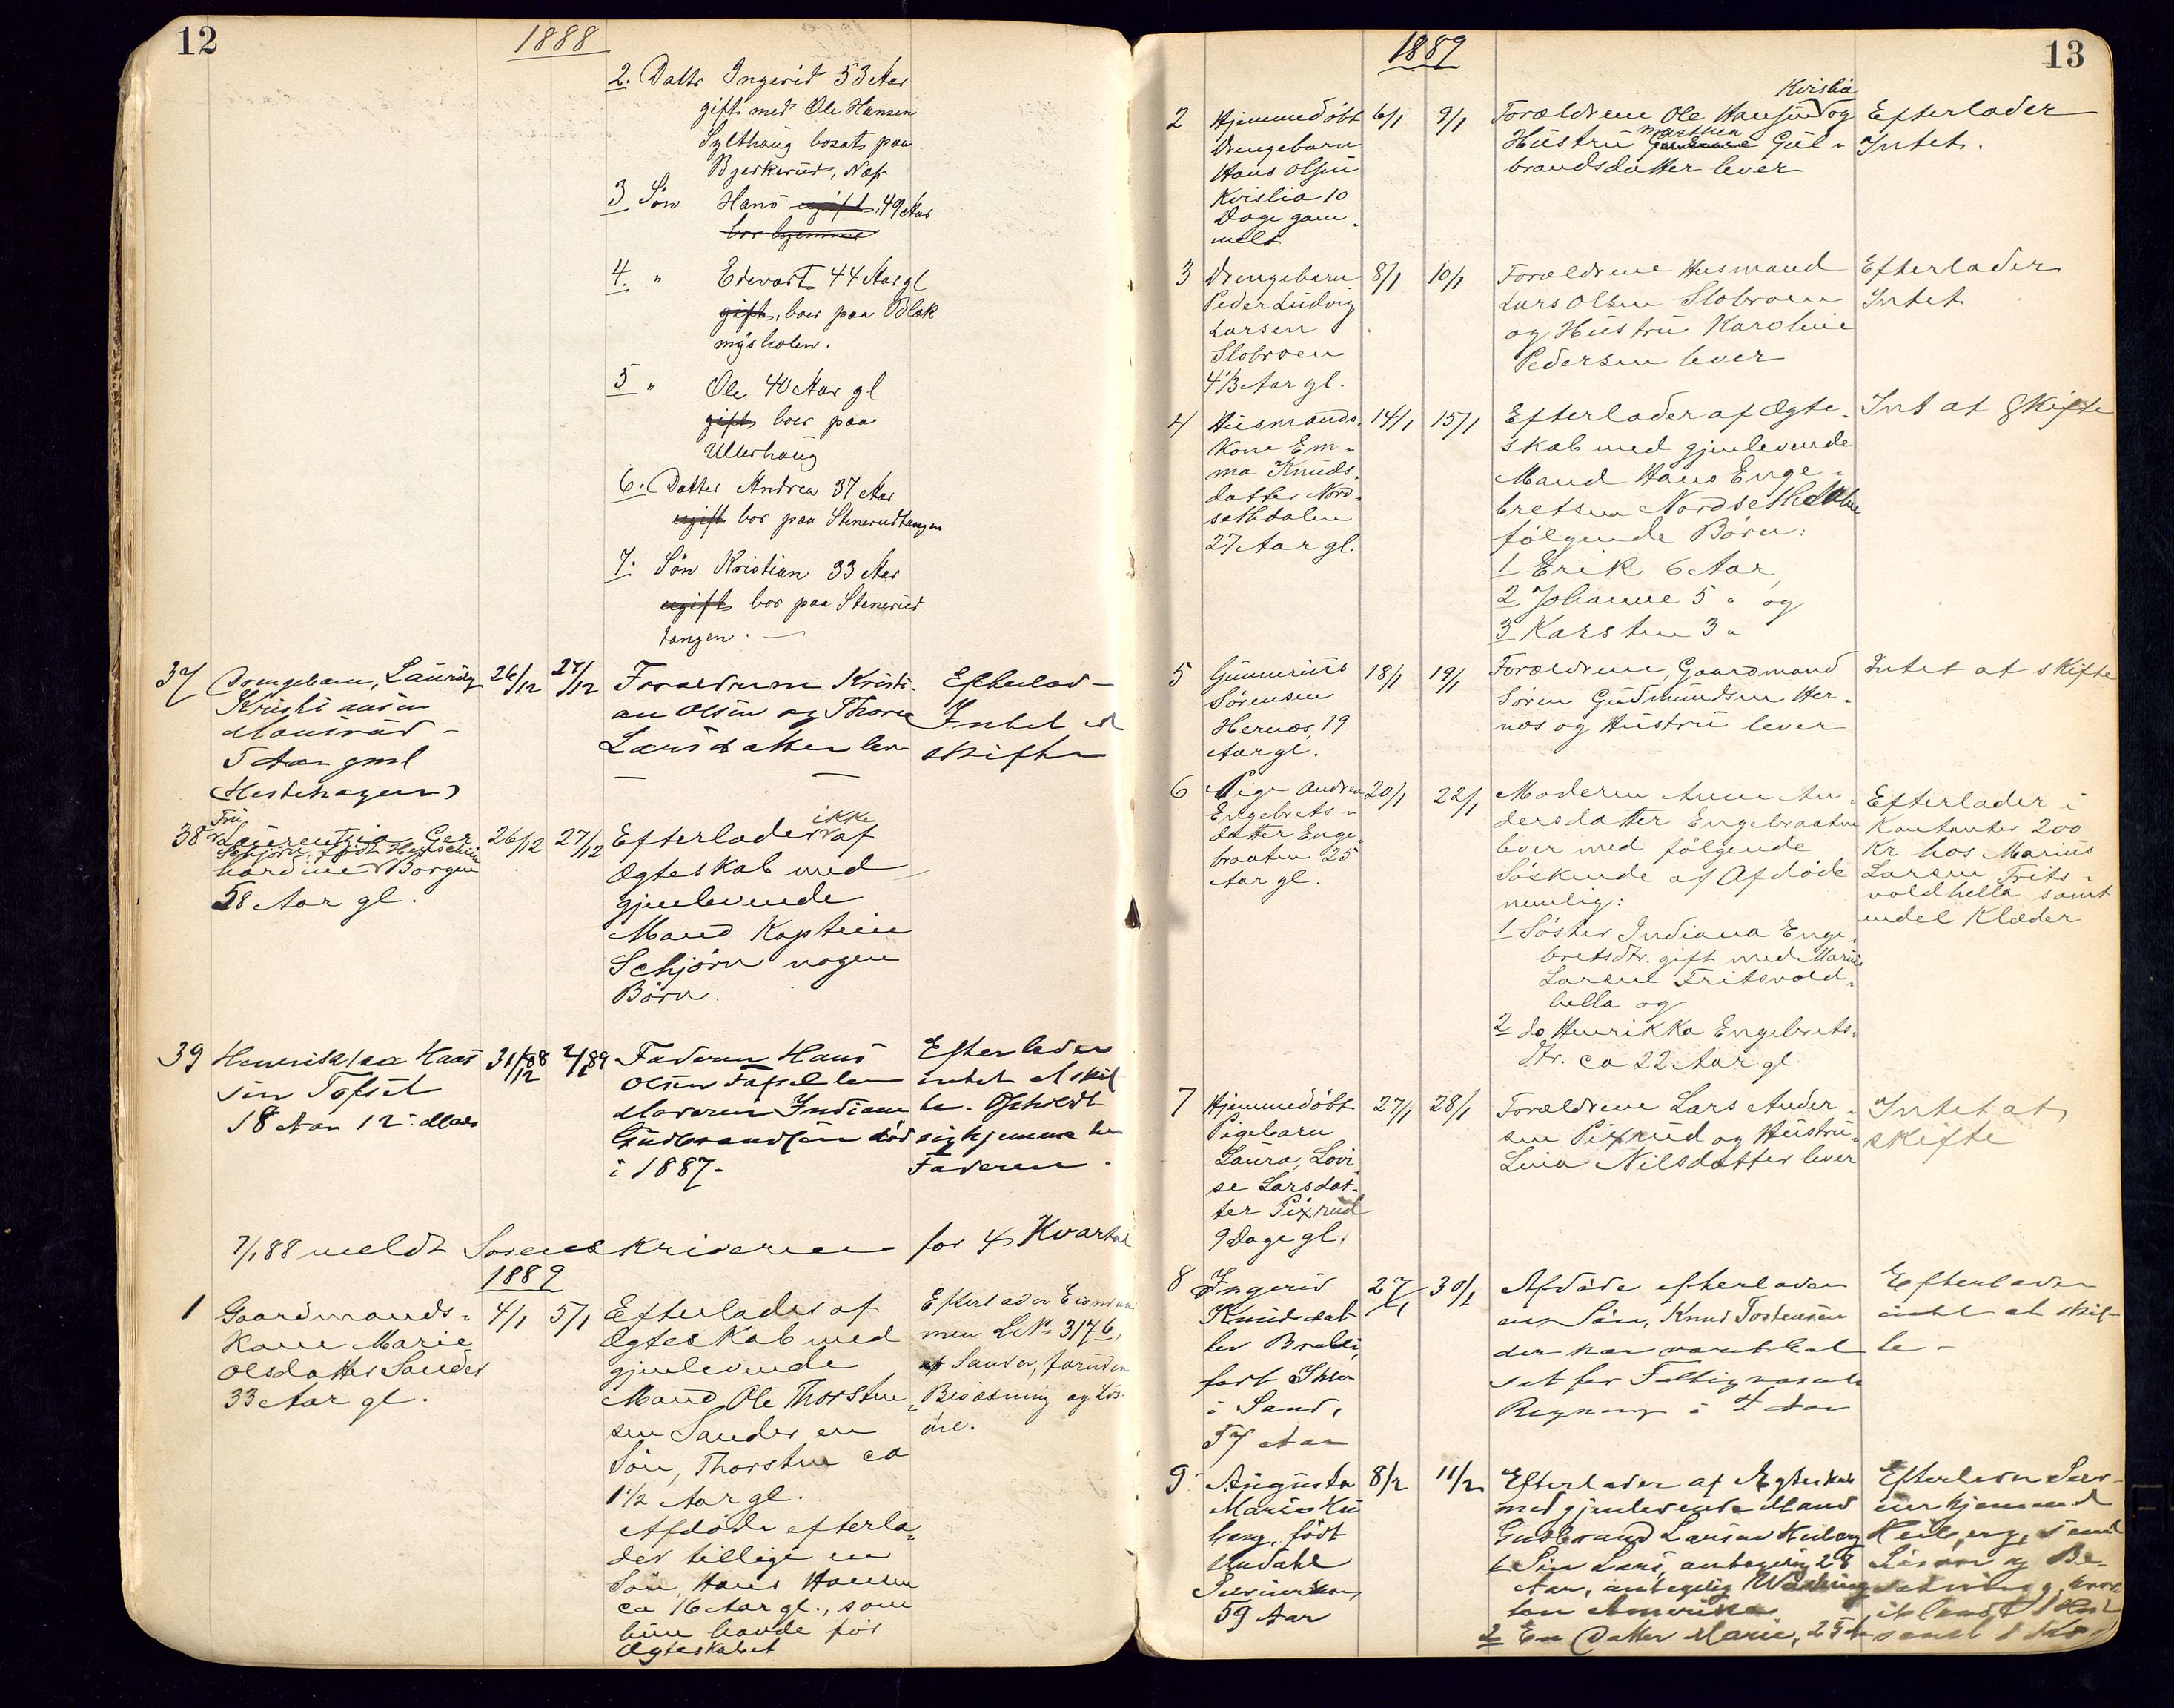 12
1888
2. Datter Ingerid 53 Aar
gift med Ole Hansen
Sylthaug bosat paa
Bjerkerud, Næs
3 Søn Hans ugift, 49 Aar
bor hjemme
4. " Edevart 44 Aar gl
gift, boer paa Blak
myrholen.
5 " Ole 40 Aar gl
gift boer paa
Ullerhaug
6. Datter Andrea 37 Aar
ugift bor paa Stenerudtangen
7. Søn Kristian 33 Aar
ugift bor paa Stenerud
tangen. —
37 Drengebarn, Lauritz
Kristiansen
5 Aar gml
(Hestehagen)
26/12 27/12
Forældrene Kristi-
an Olsen og Thora
Larsdatter lever
Efterlad-
Intet at
skifte
38 Fru
Laurentzia Ger
Schjørn, født
hardine Borgen
58 Aar gl.
26/12 27/12
ikke
Efterlader af
Ægteskab med
gjenlevende
Mand Kaptein
Schjørn nogen
Børn.
39 Henrik Han
sen Tofset
18 Aar 12 Mdr
31/12 88 2/1 89
Faderen Hans
Olsen Tofset lever
Moderen Indiane
Gudbrandsen død
i 1887 -
Efterlader
intet at skif
te. Opholdt
sig hjemme hos
Faderen.
7/1 88 meldt Sorenskriveren for 4 Kvartal
1889
1 Gaardmands-
kone Marie
Olsdatter Sander
33 Aar gl.
4/1 5/1
Efterlader af
Ægteskab med
gjenlevende
Mand Ole Thorsten-
sen Sander en
Søn, Thorsten ca
1 1/2 Aar gl.
Afdøde efterla-
der tillige en
Søn, Hans Hansen
ca 16 Aar gl., som
hun havde før
Ægteskabet
Efterlader Eiendom
men
af Sander, foruden
Besætning og Løs-
øre.
1889
13
2 Hjemmedøbt
Drengebarn
Hans Olsen
Kvislia 10
Dage gam-
melt
6/1 9/1
Kvislia
Forældrene Ole Hansen og
Marthea
Hustru Gul-
brandsdatter lever
Efterlader
Intet.
3 Drengebarn
Peder Ludvig
Larsen
Slobroen
4 1/3 Aar gl.
8/1 10/1
Forældrene Husmand
Lars Olsen Slobroen
og Hustru Karoline
Pedersen lever
Efterlader
Intet
4 Husmands-
kone Em-
ma Knuds-
datter Nord-
sethdalen
27 Aar gl.
14/1 15/1
Efterlader af Ægte-
skab med gjenlevende
Mand Hans Enge-
bretsen Nordsethdalen
følgende Børn:
1 Erik 6 Aar,
2 Johanne 5 " og
3 Karsten 3 "
Int at skifte
5 Gunnerius
Sørensen
Hernæs, 19
Aar gl.
18/1 19/1
Forældrene Gaardmand
Søren Gudmundsen Her-
næs og Hustru lever
Intet at skifte
6 Pige Andrea
Engebrets-
datter Enge-
braaten 25
Aar gl.
20/1 22/1
Moderen Anne An-
dersdatter Engebraaten
lever med følgende
Søskende af Afdøde
nemlig:
1 Søster Indiana Enge-
bretsdtr. gift med Marius
Larsen Fritsvold-
hella og
2 do Henrikka Engebrets-
dtr. ca 22 Aar gl
Efterlader i
Kontanter 200
Kr hos Marius
Larsen Frits-
voldhella samt
endel Klæder
7 Hjemmedøbt
Pigebarn
Laura, Lovi
se Larsdat-
ter Pixrud
9 Dage gl.
27/1 28/1
Forældrene Lars Ander-
sen Pixrud og Hustru
Lina Nilsdatter lever
Intet at
skifte
8 Ingerid
Knudsdat
ter
født
i Sand,
57 Aar
27/1 30/1
Afdøde efterlader
en Søn, Knud Torstensen
der har været
sat for Fattigvæsenets
Regning i 4 Aar
Efterlader
intet at skif
te -
9 Augusta
Marie
berg, født
59 Aar
8/2 11/2
Efterlader af Ægteskab
med gjenlevende Mand
Gudbrand Larsen
1 Søn Lars, antagelig 28
Aar, antagelig Washing
ton Amerika
2 En Datter Marie, 25
Efterlader
samt
Løsøre og Be-
sætning,